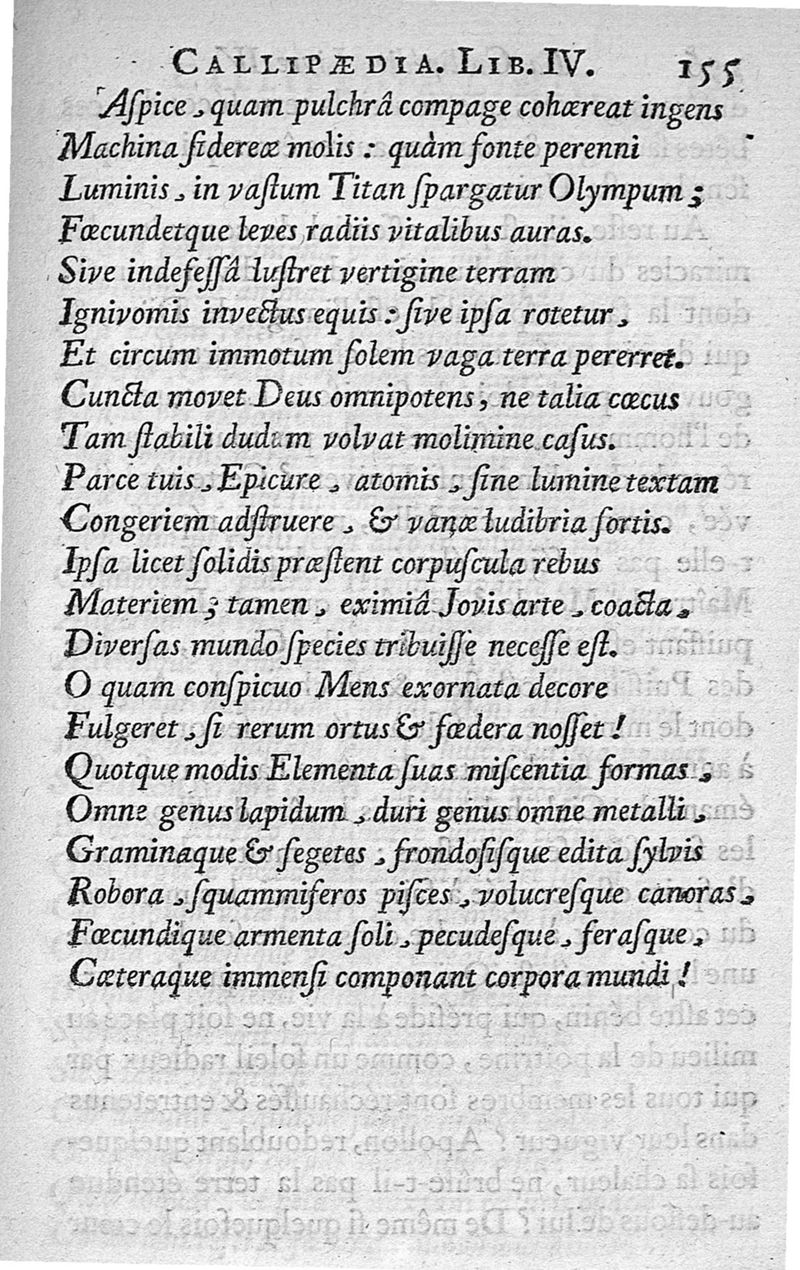 CALLIPÆDIA. LIB. IV. 155
Aſpice, quam pulchrâ compage cohæreat ingens
Machina ſidereæ molis : quàm fonte perenni
Luminis, in vaſtum Titan ſpargatur Olympum ;
Fœcundetque leves radiis vitalibus auras.
Sive indefeſſâ luſtret vertigine terram
Ignivomis invectus equis : ſive ipſa rotetur,
Et circum immotum ſolem vaga terra pererret.
Cuncta movet Deus omnipotens, ne talia cœcus
Tam ſtabili dudum volvat molimine caſus.
Parce tuis, Epicure, atomis, ſine lumine textam
Congeriem adſtruere, & vanæ ludibria ſortis.
Ipſa licet ſolidis præſtent corpuſcula rebus
Materiem ; tamen, eximiâ Jovis arte, coacta,
Diverſas mundo ſpecies tribuiſſe neceſſe eſt.
O quam conſpicuo Mens exornata decore
Fulgeret, ſi rerum ortus & fœdera noſſet !
Quotque modis Elementa ſuas miſcentia formas,
Omne genus lapidum, duri genus omne metalli,
Graminaque & ſegetes, frondoſiſque edita ſylvis
Robora, ſquammiferos piſces, volucreſque canoras,
Fœcundique armenta ſoli, pecudeſque, feraſque,
Cæteraque immenſi componant corpora mundi !